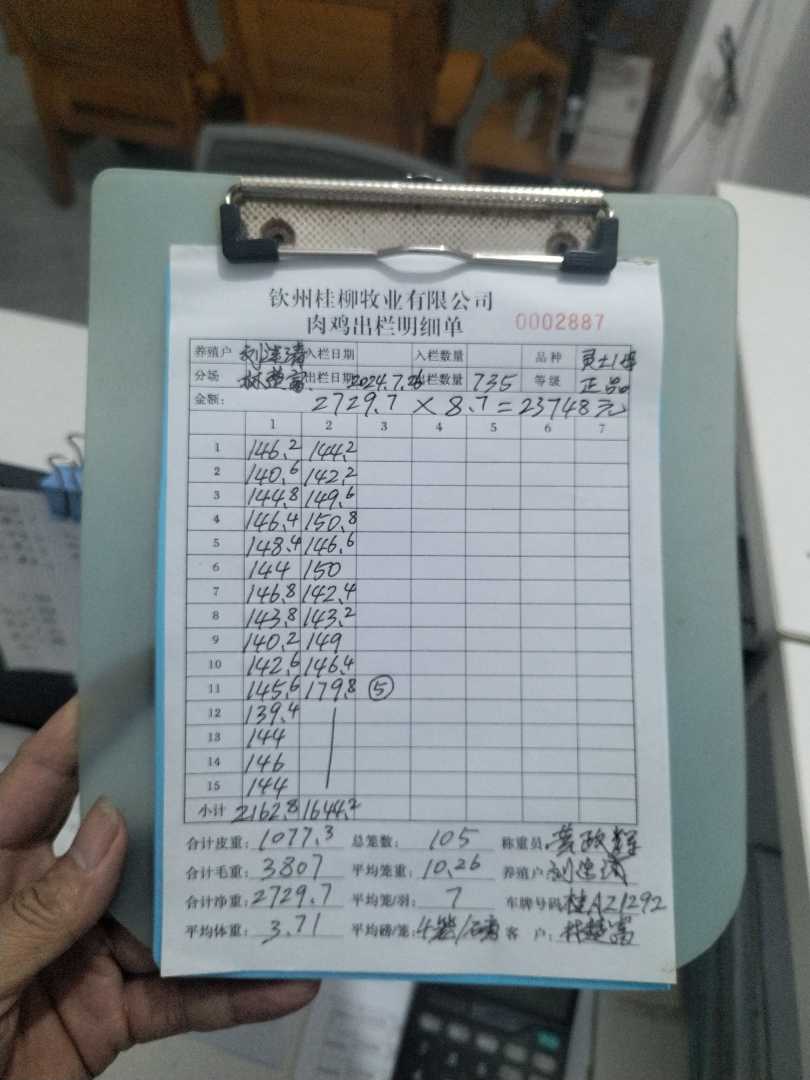 钦州桂柳牧业有限公司
肉鸡出栏明细单 0002887
养殖户 入栏日期 入栏数量 品种
分场 林楚富 出栏日期 2024.7.26 出栏数量 735 等级 正品
金额: 2729.7 × 8.7 = 23748元
1 2 3 4 5 6 7
1 146.2 144.2
2 140.6 142.2
3 144.8 149.6
4 146.4 150.8
5 148.4 146.6
6 144 150
7 146.8 142.4
8 143.8 143.2
9 140.2 149
10 142.6 146.4
11 145.6 179.8 ⑤
12 139.4
13 144
14 146
15 144
小计 2162.8 1644.2
合计皮重: 1077.3 总笼数: 105 称重员: 黄政辉
合计毛重: 3807 平均笼重: 10.26 养殖户:
合计净重: 2729.7 平均笼/羽: 7 车牌号码: 桂AZ1292
平均体重: 3.71 平均磅/笼: 4笼/磅 客户: 林楚富